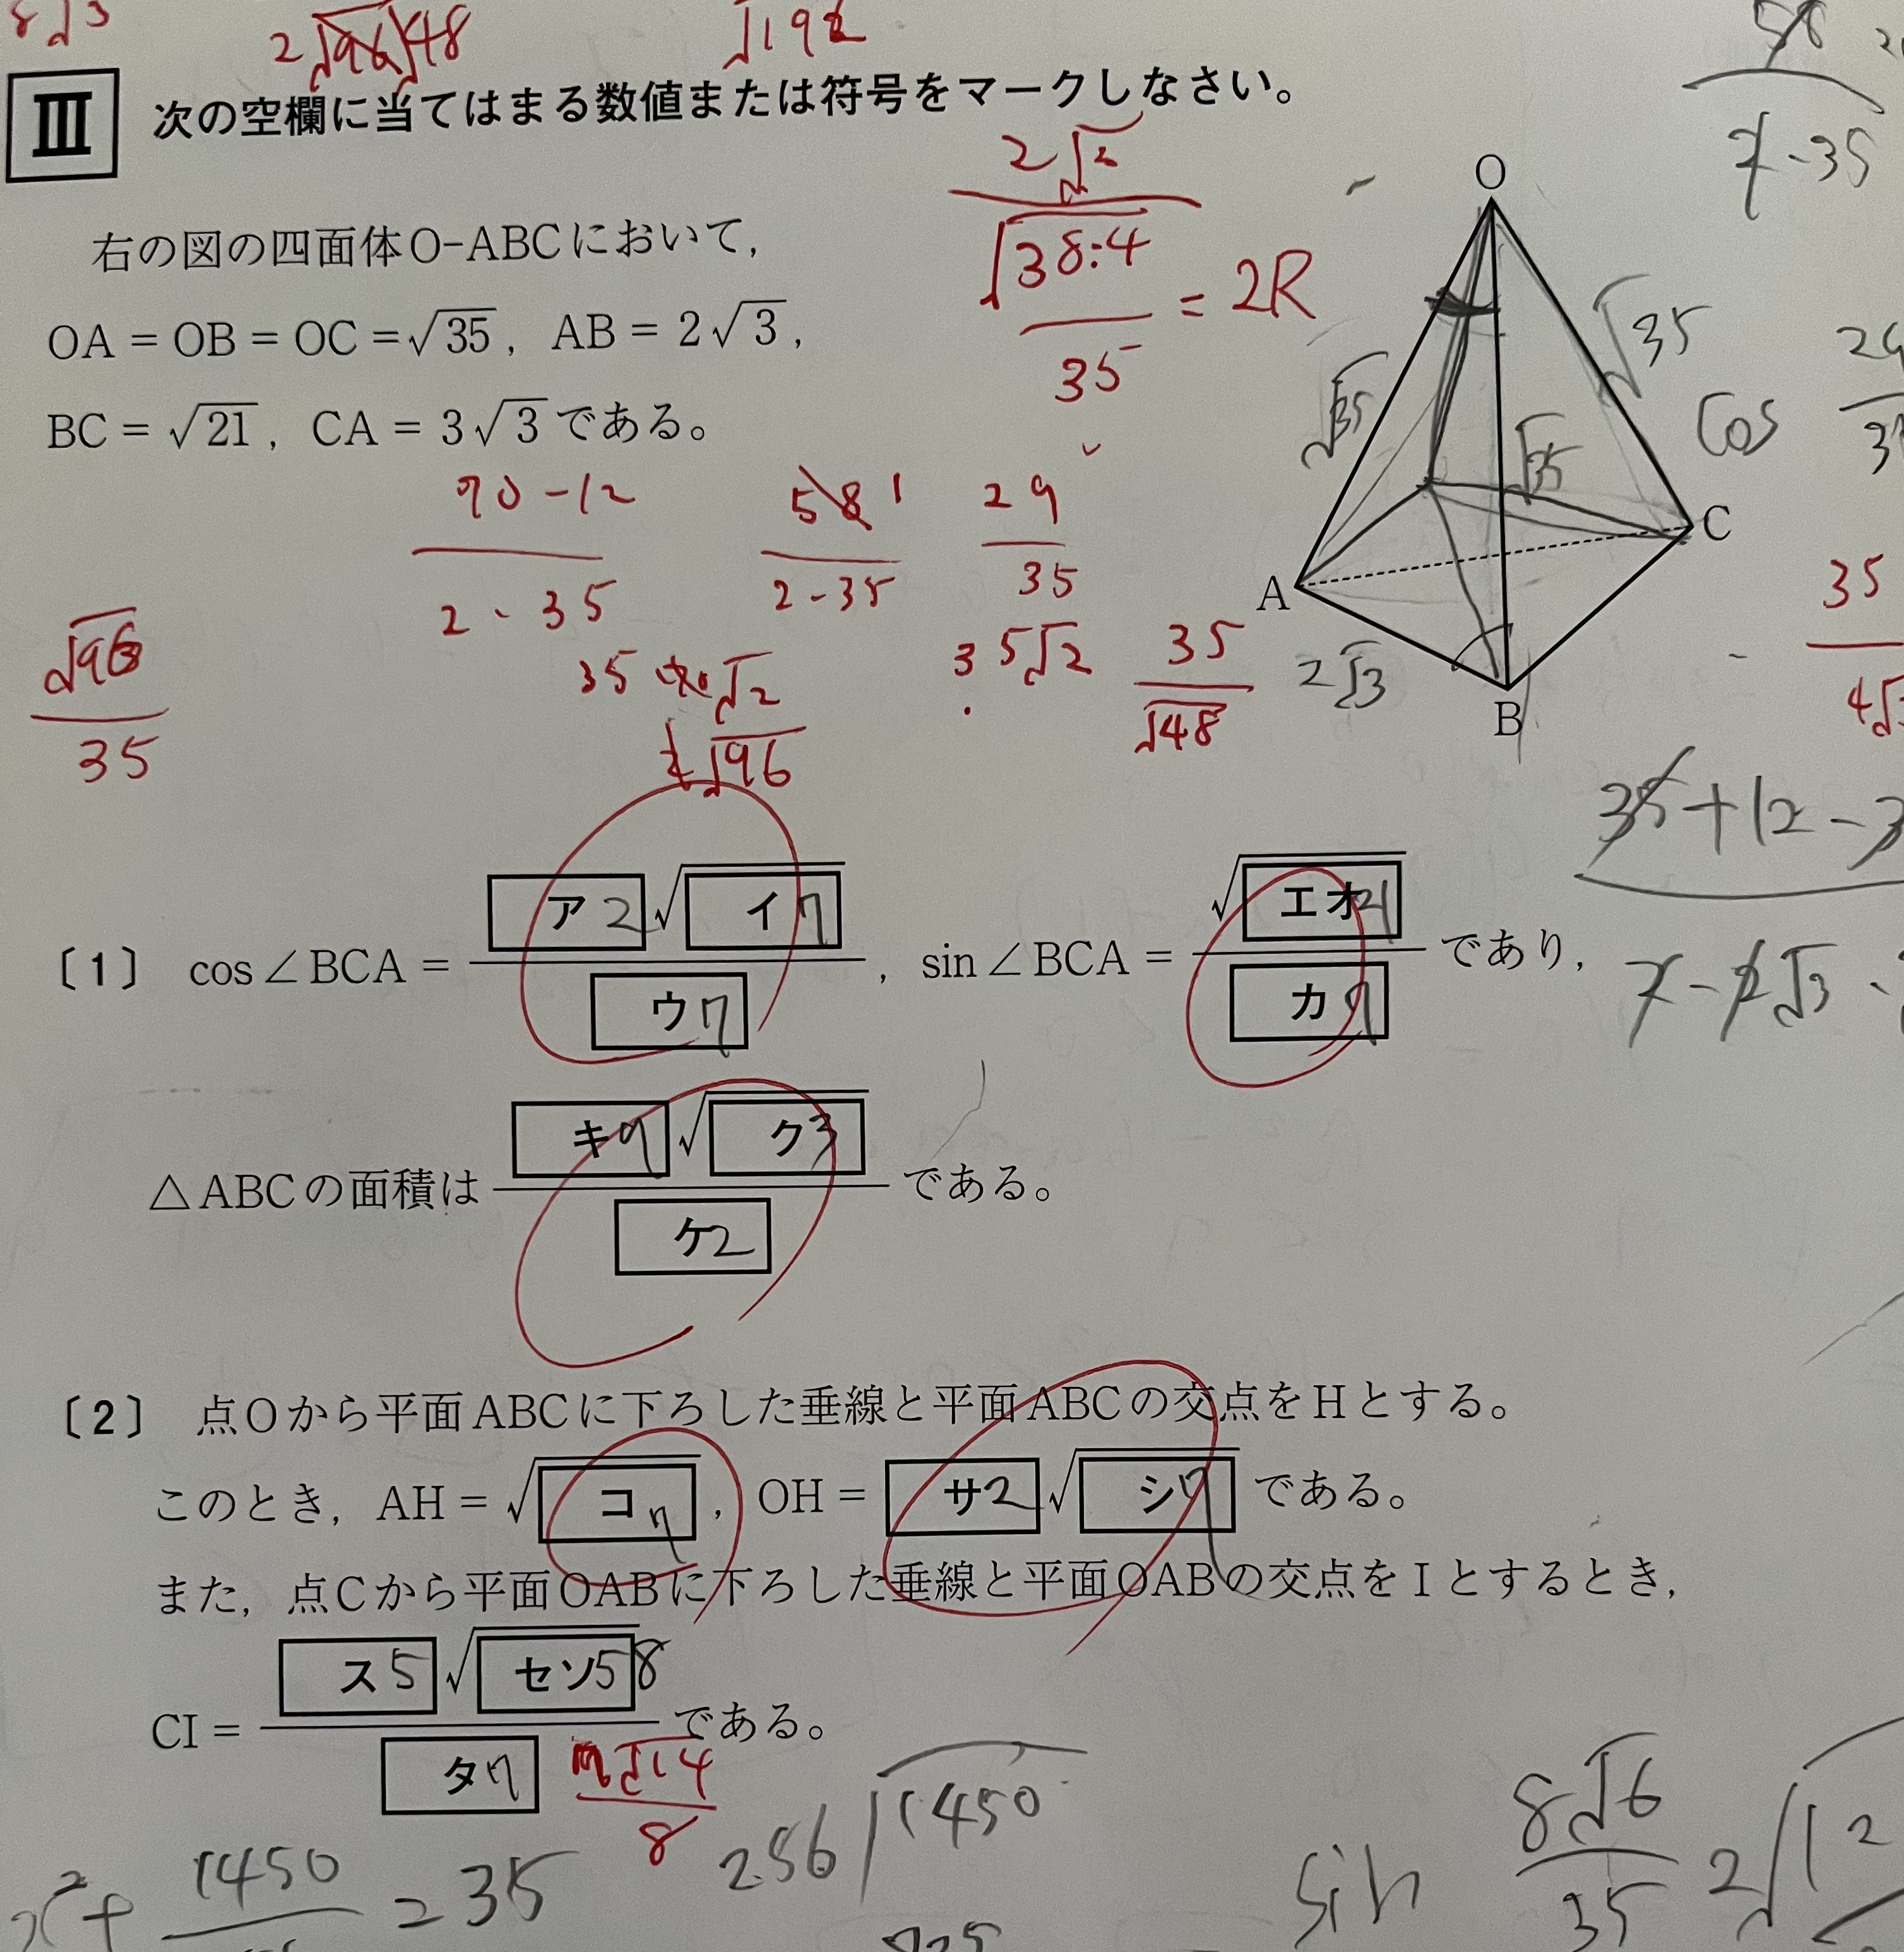 8√3
2√96 √48
√192
58
7-35
III 次の空欄に当てはまる数値または符号をマークしなさい。
2√2
√38:4
35
= 2R
O
右の図の四面体O-ABCにおいて,
OA = OB = OC = √35, AB = 2√3,
BC = √21, CA = 3√3である。
√35
√35
√35
cos
29
A
C
B
2√3
70-12
2-35
58 1
2-35
29
35
√96
35
35 √2
√96
35√2
35
√48
35
35+12-3
7-2√3
〔1〕 cos∠BCA = ア2√イ7 / ウ7, sin∠BCA = √エオ21 / カ7 であり,
△ABCの面積は キ9√ク3 / ケ2 である。
〔2〕 点Oから平面ABCに下ろした垂線と平面ABCの交点をHとする。
このとき, AH = √コ7, OH = サ2√シ7 である。
また, 点Cから平面OABに下ろした垂線と平面OABの交点をIとするとき,
CI = ス5√セソ58 / タ7 である。
√14
8
x²+ 1450 = 35
256 √1450
sin 8√6
35